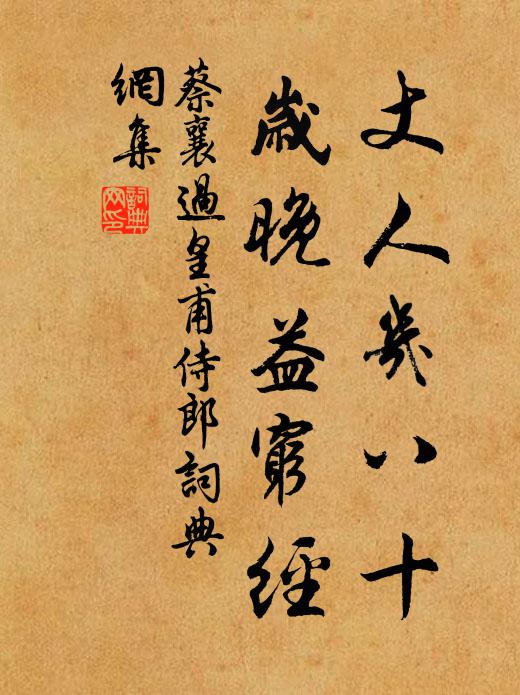 丈人幾八十
歲晚益窮經
蔡襄過皇甫侍郎詞典
網集
詞典
网印